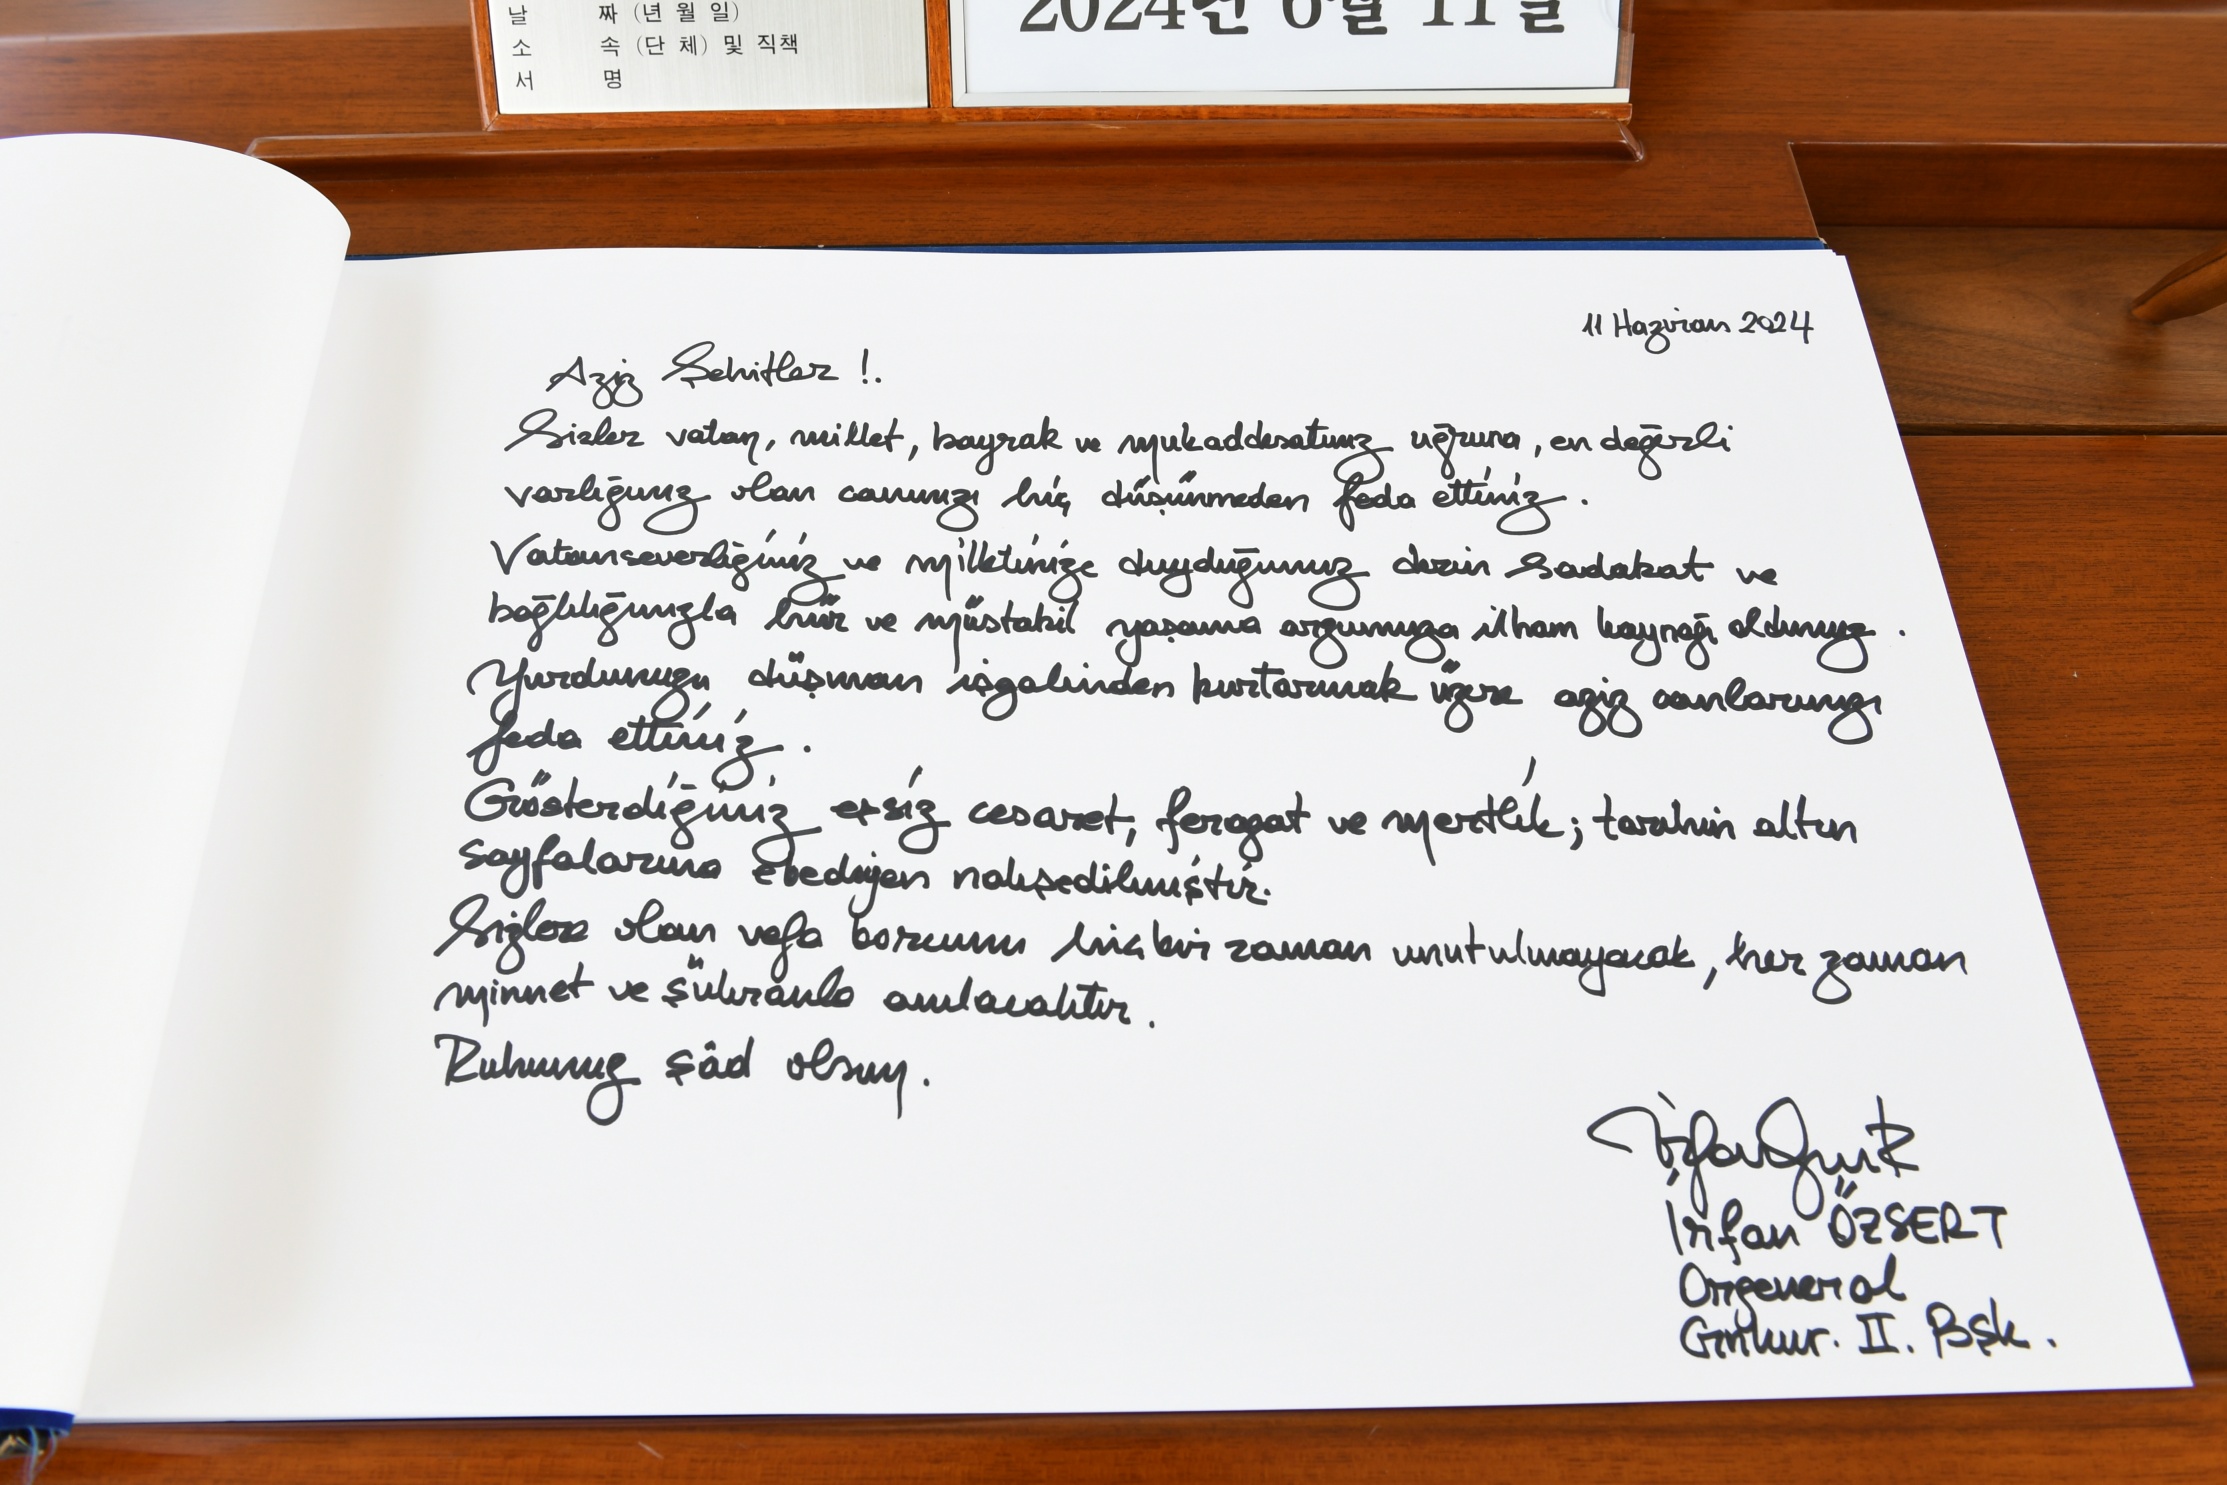 날 짜 (년 월 일)
소 속 (단 체) 및 직책
서 명
2024년 6월 11일
11 Haziran 2024
Aziz Şehitler !.
Sizler vatan, millet, bayrak ve mukaddesatınız uğruna, en değerli
varlığınız olan canınızı hiç düşünmeden feda ettiniz.
Vatanseverliğiniz ve milletinize duyduğunuz derin sadakat ve
bağlılığınızla hür ve müstakil yaşama arzunuza ilham kaynağı oldunuz.
Yurdunuzu düşman işgalinden kurtarmak üzere aziz canlarınızı
feda ettiniz.
Gösterdiğiniz eşsiz cesaret, feragat ve mertlik; tarihin altın
sayfalarına ebediyen nakşedilmiştir.
Sizlere olan vefa borcunu hiçbir zaman unutulmayacak, her zaman
minnet ve şükranla anılacaktır.
Ruhunuz şâd olsun.
İrfan ÖZSERT
Orgeneral
Gnkur. II. Bşk.